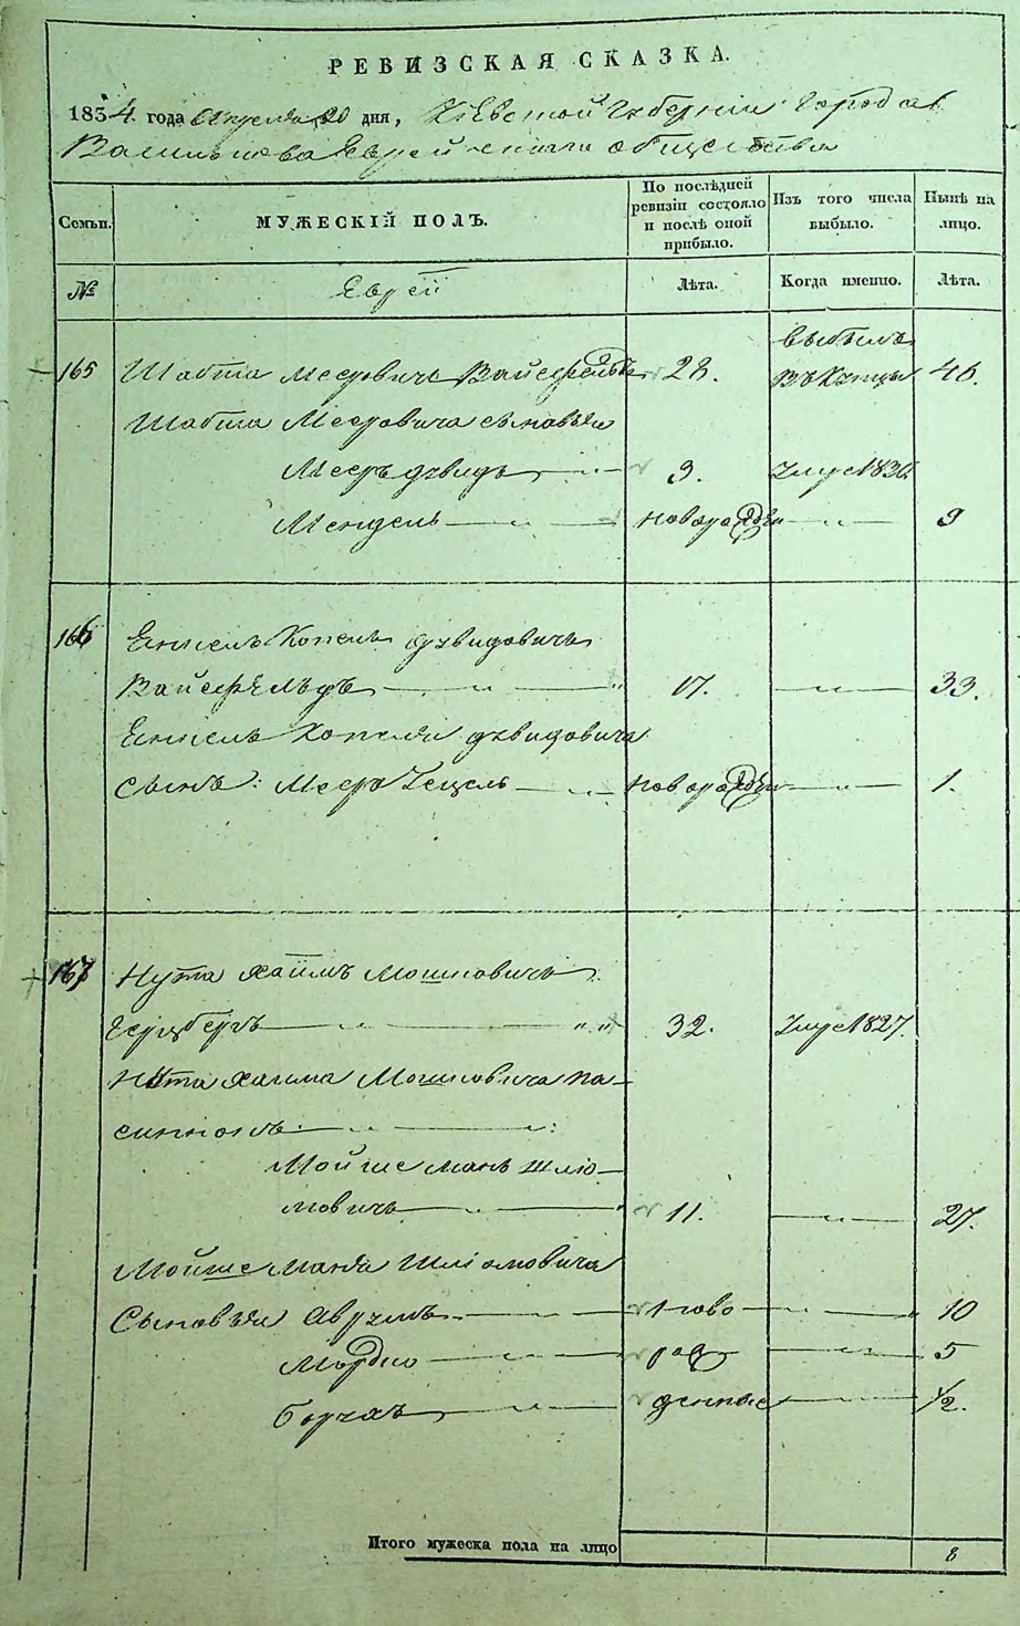 РЕВИЗСКАЯ СКАЗКА.
1854 года Апреля 20 дня, Кіевской Губерніи Города
Василькова Еврейскаго общества
Семьи. МУЖЕСКІЙ ПОЛЪ. По послѣдней ревизіи состояло и послѣ оной прибыло. Изъ того числа выбыло. Нынѣ на лицо.
№ Евреи Лѣта. Когда именно. Лѣта.
выбылъ
165 Шабта Меерович Вайсфельдъ 28. въ Купцы 46.
Шабта Мееровича сыновья
Мееръ Дувидъ — " — 3. умре 1836
Мендель — " — новорожден — " — 9
166 Копель Дувидовичъ
Вайсфельдъ — " — " 17. — " — 33.
Копеля Дувидовича
сынъ: Меер — " — новорожден — " — 1.
167 Нута Хаимъ Мошковичъ
Герцбергъ — " — " " 32. умре 1827.
Нута Хаима Мошковича па-
синнокъ — " — :
Мойше Манъ Шліо-
мовичъ — " — 11. — " — 27.
Мойше Маня Шліомовича
Сыновья Аврумъ — " — ново — " — 10
Мордко — " — рож — " — 5
Борухъ — " — денные — " — 1/2.
Итого мужеска пола на лицо 8